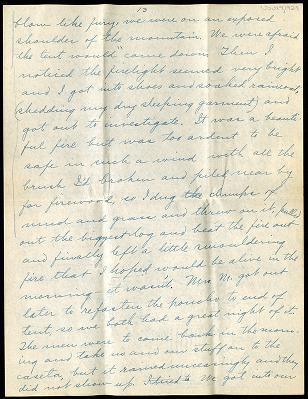 13
blow like fury, we were on an exposed
shoulder of the mountain. We were afraid
the tent would "come down." Then I
noticed the firelight seemed very bright
and I got into shoes and soaked raincoat,
(shedding my dry sleeping garment) and
got out to investigate. It was a beauti-
ful fire but was too ardent to be
safe in such a wind with all the
brush I'd broken and piled near by
for firewood, so I dug the clumps of
mud and grass and threw on it, pulled
out the biggest log and beat the fire out
and finally left a little smouldering
fire that I hoped would be alive in the
morning - it wasn't. Mrs. M. got out
later to refasten the poncho to end of
tent, so we both had a great night of it.
The men were to come back in the morn-
ing and take us and our stuff on to the
careta, but it rained unceasingly and they
did not show up. We got into our